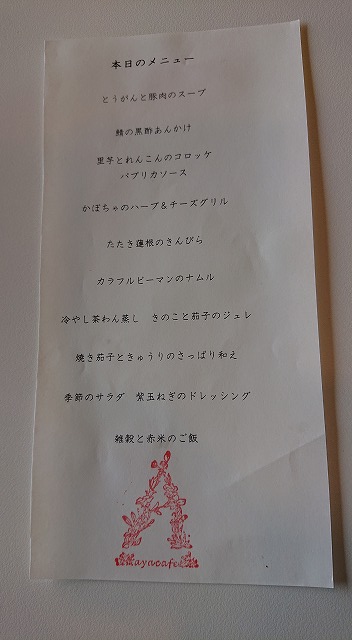 本日のメニュー
とうがんと豚肉のスープ
鯖の黒酢あんかけ
里芋とれんこんのコロッケ
パプリカソース
かぼちゃのハーブ＆チーズグリル
たたき蓮根のきんぴら
カラフルピーマンのナムル
冷やし茶わん蒸し　きのこと茄子のジュレ
焼き茄子ときゅうりのさっぱり和え
季節のサラダ　紫玉ねぎのドレッシング
雑穀と赤米のご飯
A
ayacafe